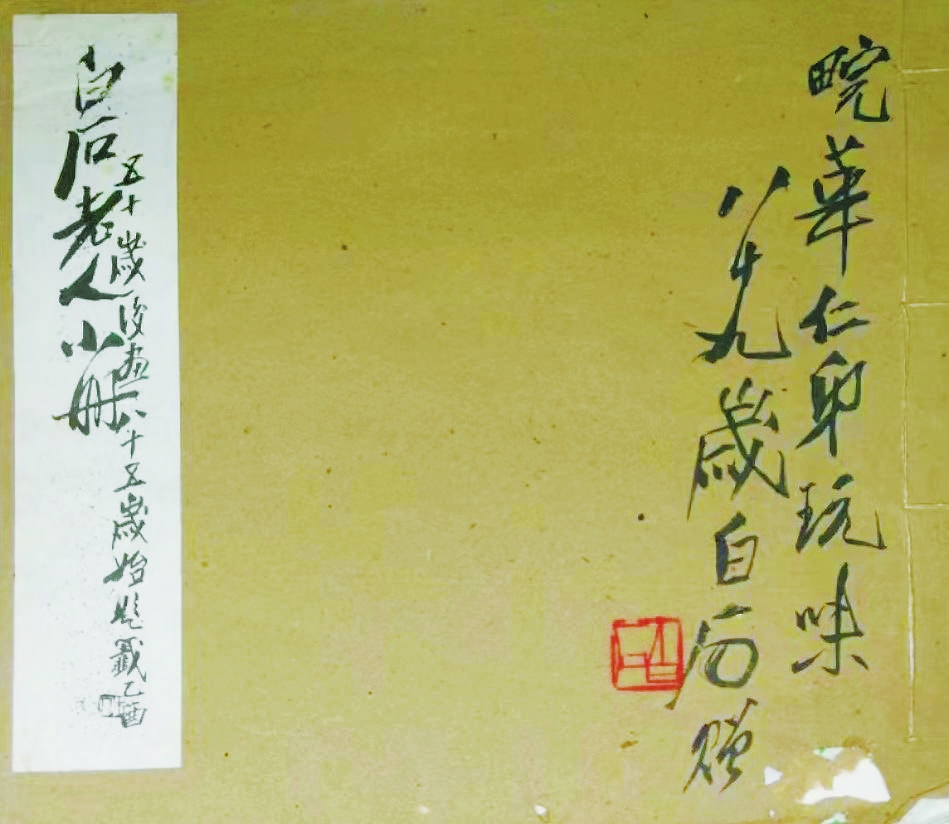 畹華仁玩味
八十九歲白石贈
白石老人小冊
五十歲後畫八十五歲始題籤乙酉